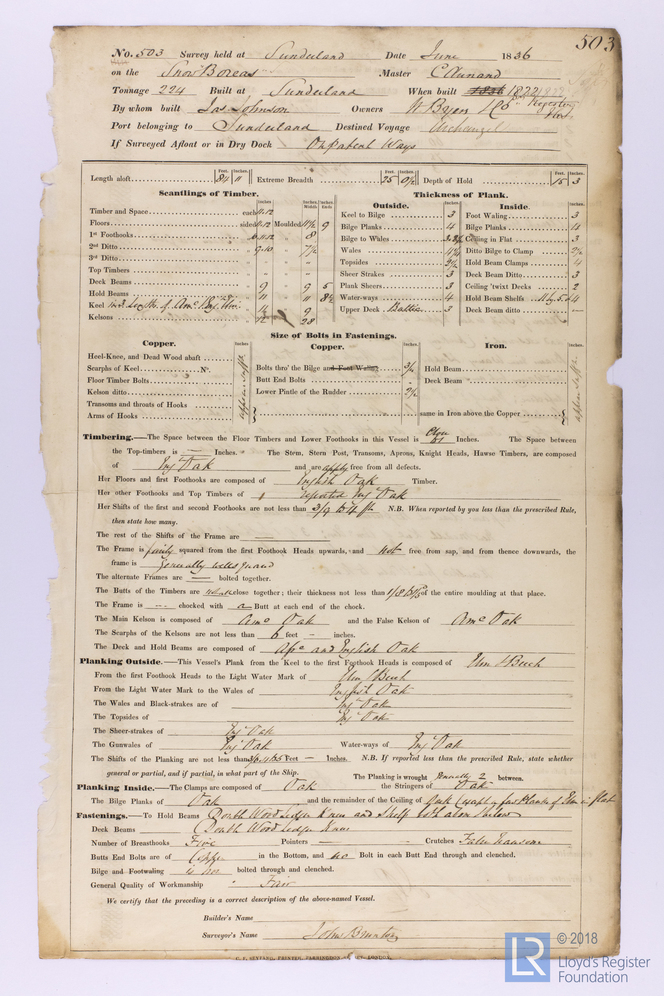 503
No. 503 Survey held at Sunderland Date June 1836
on the Snow Boreas Master C Aunand
Tonnage 224 Built at Sunderland When built 1822
By whom built Jas. Johnson Owners
Port belonging to Sunderland Destined Voyage Archangel
If Surveyed Afloat or in Dry Dock On Patent Ways
Feet. Inches. Feet. Inches. Feet. Inches.
Length aloft 84 11 Extreme Breadth 25 0½ Depth of Hold 15 3
Scantlings of Timber. Thickness of Plank.
Outside. Inside.
Timber and Space each
Floors sided Moulded 9
1st Foothooks 8
2nd Ditto 9-10 7½
3rd Ditto
Top Timbers
Deck Beams 9 9 5
Hold Beams 11 11 8½
Keel
Kelsons 28
Keel to Bilge 3
Bilge Planks 4
Bilge to Wales
Wales
Topsides 2½
Sheer Strakes 3
Plank Sheers 3
Water-ways 4
Upper Deck Baltic 3
Foot Waling 3
Bilge Planks 4
Ceiling in Flat 3
Ditto Bilge to Clamp 2½
Hold Beam Clamps 4
Deck Beam Ditto 3
Ceiling 'twixt Decks 2
Hold Beam Shelfs 4
Deck Beam ditto —
Size of Bolts in Fastenings.
Copper. Copper. Iron.
Heel-Knee, and Dead Wood abaft
Scarphs of Keel No.
Floor Timber Bolts
Kelson ditto
Transoms and throats of Hooks
Arms of Hooks
Bolts thro' the Bilge and Foot Waling 3/4
Butt End Bolts
Lower Pintle of the Rudder 2½
Hold Beam
Deck Beam
same in Iron above the Copper
Timbering.—The Space between the Floor Timbers and Lower Foothooks in this Vessel is Inches. The Space between
the Top-timbers is — Inches. The Stem, Stern Post, Transoms, Aprons, Knight Heads, Hawse Timbers, are composed
of Eng Oak and are apply free from all defects.
Her Floors and first Foothooks are composed of English Oak Timber.
Her other Foothooks and Top Timbers of reported Eng Oak
Her Shifts of the first and second Foothooks are not less than 3/9 to 4 ft N.B. When reported by you less than the prescribed Rule,
then state how many.
The rest of the Shifts of the Frame are —
The Frame is fairly squared from the first Foothook Heads upwards, and not free from sap, and from thence downwards, the
frame is generally well squared
The alternate Frames are — bolted together.
The Butts of the Timbers are close together; their thickness not less than of the entire moulding at that place.
The Frame is --- chocked with a Butt at each end of the chock.
The Main Kelson is composed of Amc Oak and the False Kelson of Amc Oak
The Scarphs of the Kelsons are not less than 6 feet — inches.
The Deck and Hold Beams are composed of Afrc and English Oak
Planking Outside.—This Vessel's Plank from the Keel to the first Foothook Heads is composed of Elm & Beech
From the first Foothook Heads to the Light Water Mark of Elm & Beech
From the Light Water Mark to the Wales of English Oak
The Wales and Black-strakes are of Eng Oak
The Topsides of Eng Oak
The Sheer-strakes of Eng Oak
The Gunwales of Eng Oak Water-ways of Eng Oak
The Shifts of the Planking are not less than Feet — Inches. N.B. If reported less than the prescribed Rule, state whether
general or partial, and if partial, in what part of the Ship. The Planking is wrought generally 2 between.
Planking Inside.—The Clamps are composed of Oak the Stringers of Oak
The Bilge Planks of Oak and the remainder of the Ceiling of Oak except a few Planks of Elm in flat
Fastenings.—To Hold Beams Double Wood Lodge Knees and Shelf
Deck Beams Double Wood Lodge Knees
Number of Breasthooks Five Pointers — Crutches
Butts End Bolts are of Copper in the Bottom, and no Bolt in each Butt End through and clenched.
Bilge and Footwaling bolted through and clenched.
General Quality of Workmanship Fair
We certify that the preceding is a correct description of the above-named Vessel.
Builder's Name
Surveyor's Name John Brunton
LR
© 2018
Lloyd's Register
Foundation